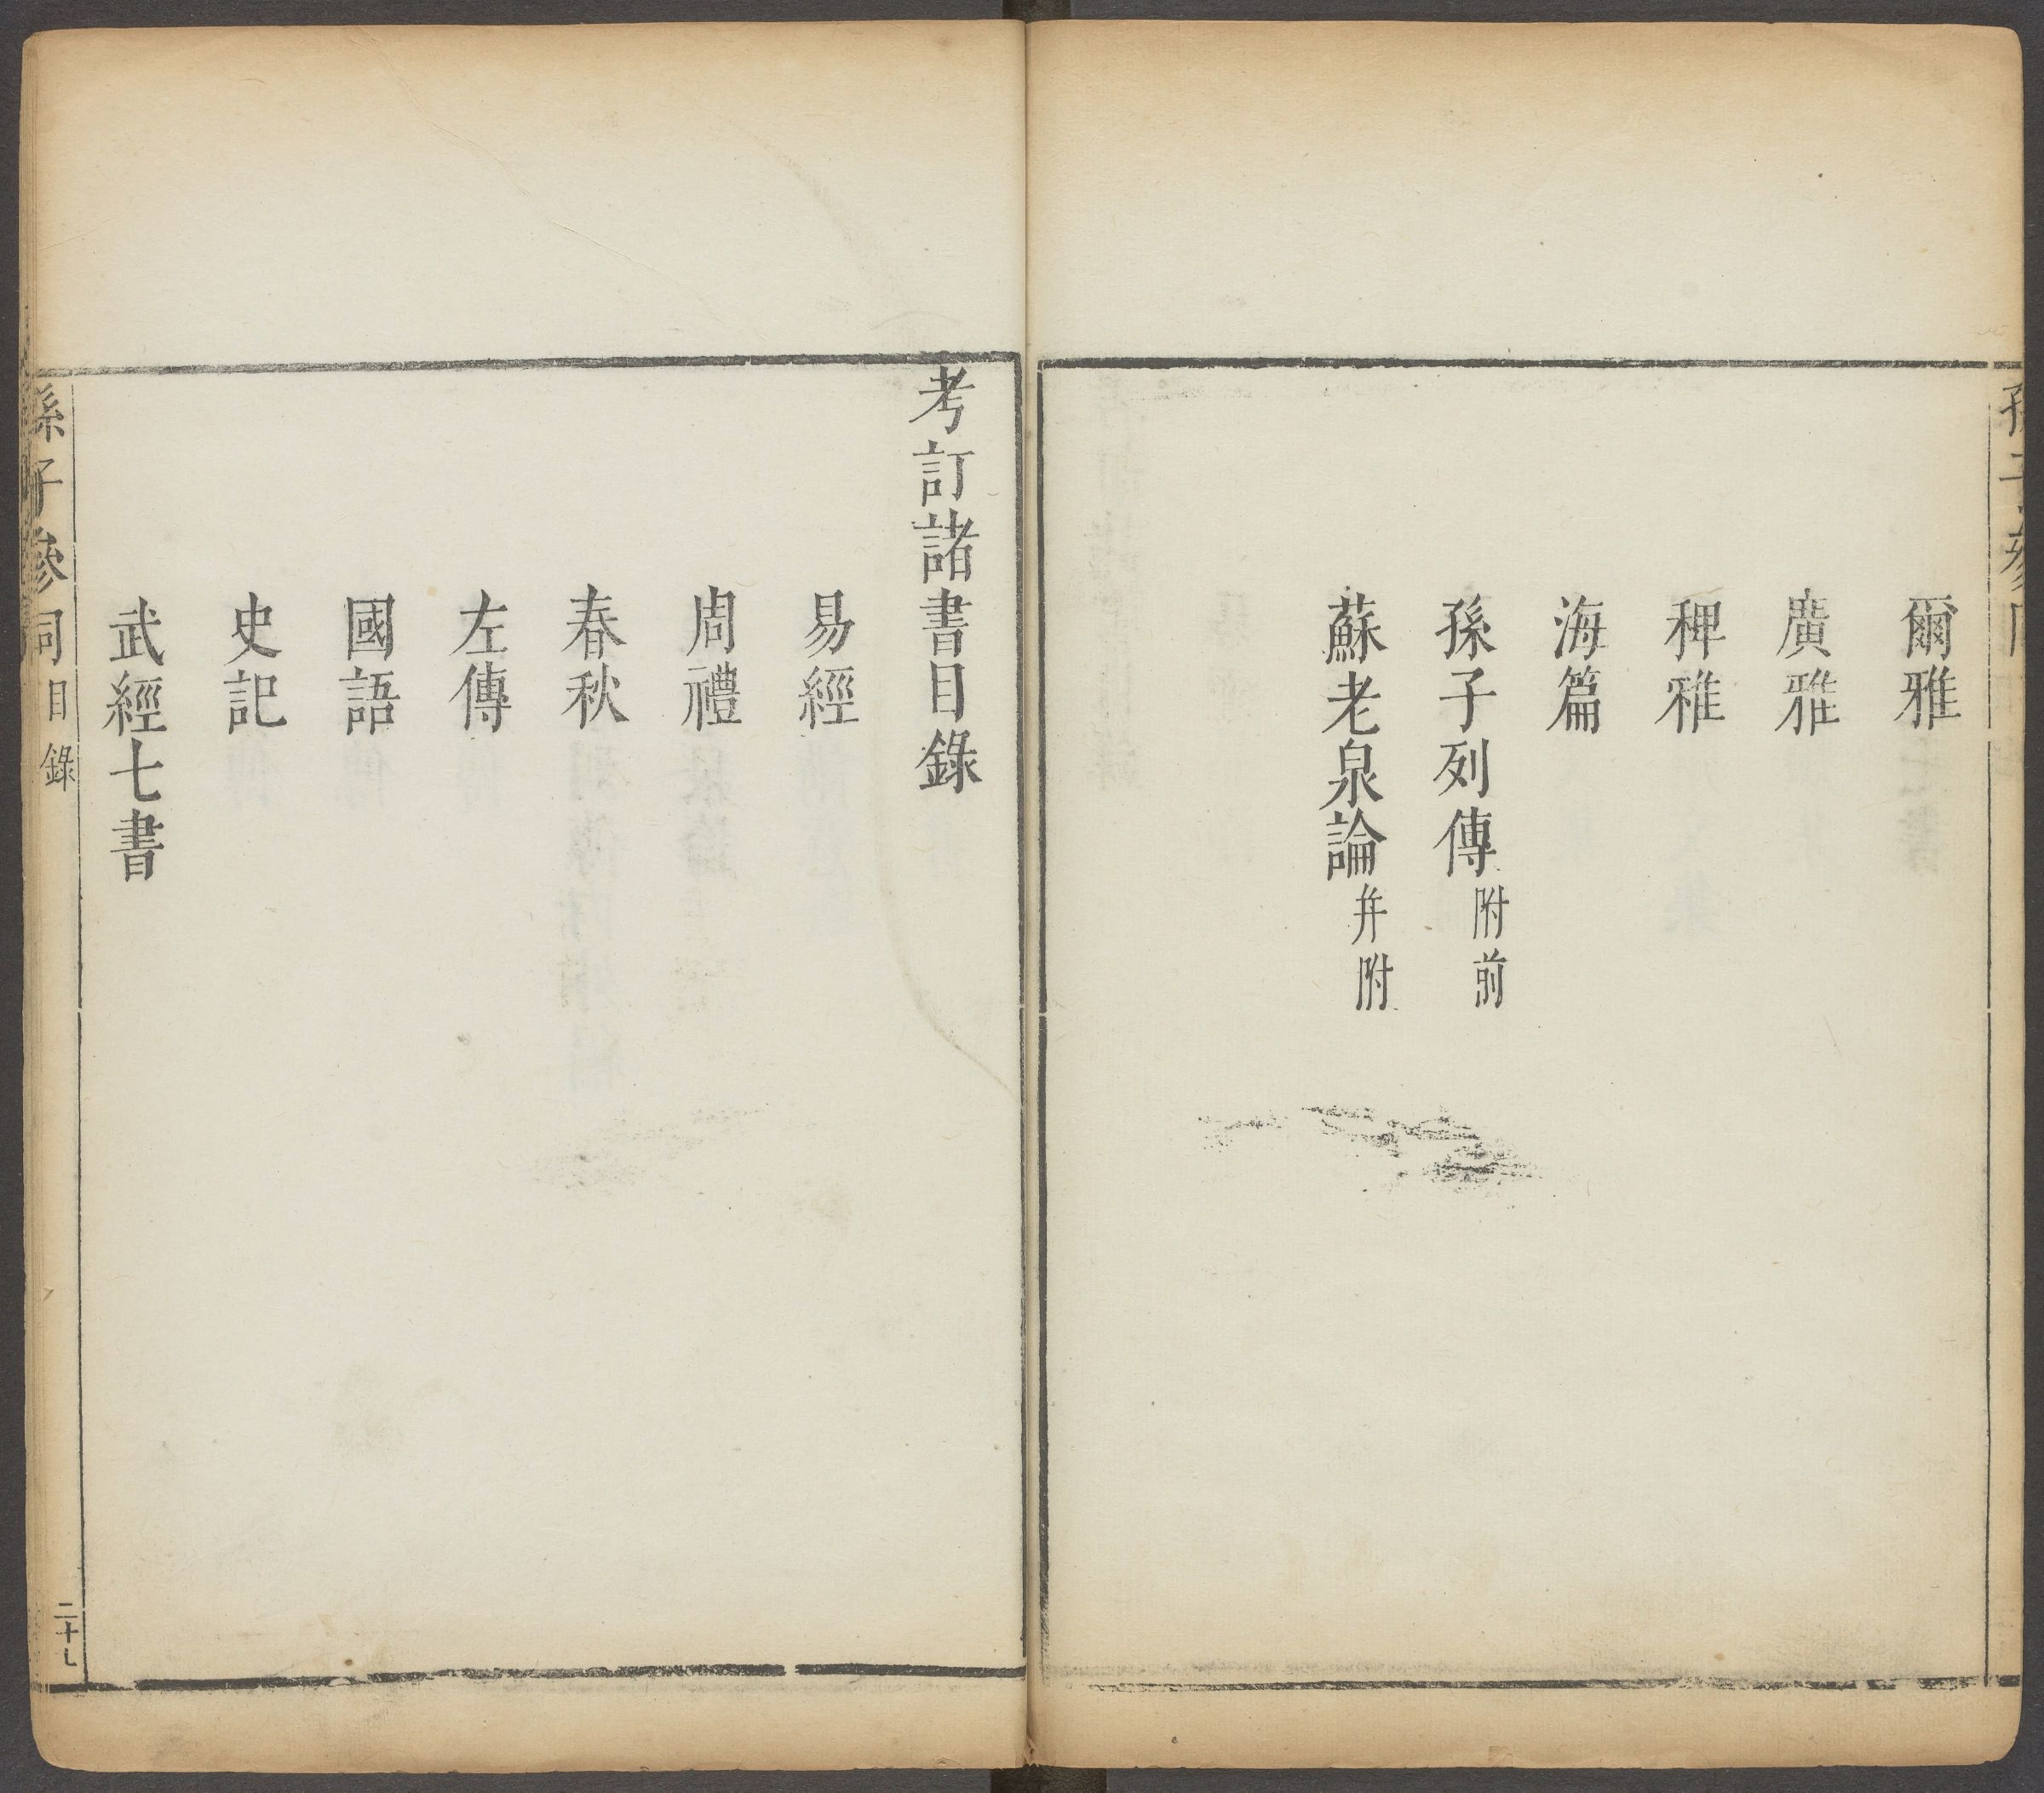 爾雅
廣雅
稗雅
海篇
孫子列傳附前
蘇老泉論并附
考訂諸書目錄
易經
周禮
春秋
左傳
國語
史記
武經七書
孫子參同目錄
二十七